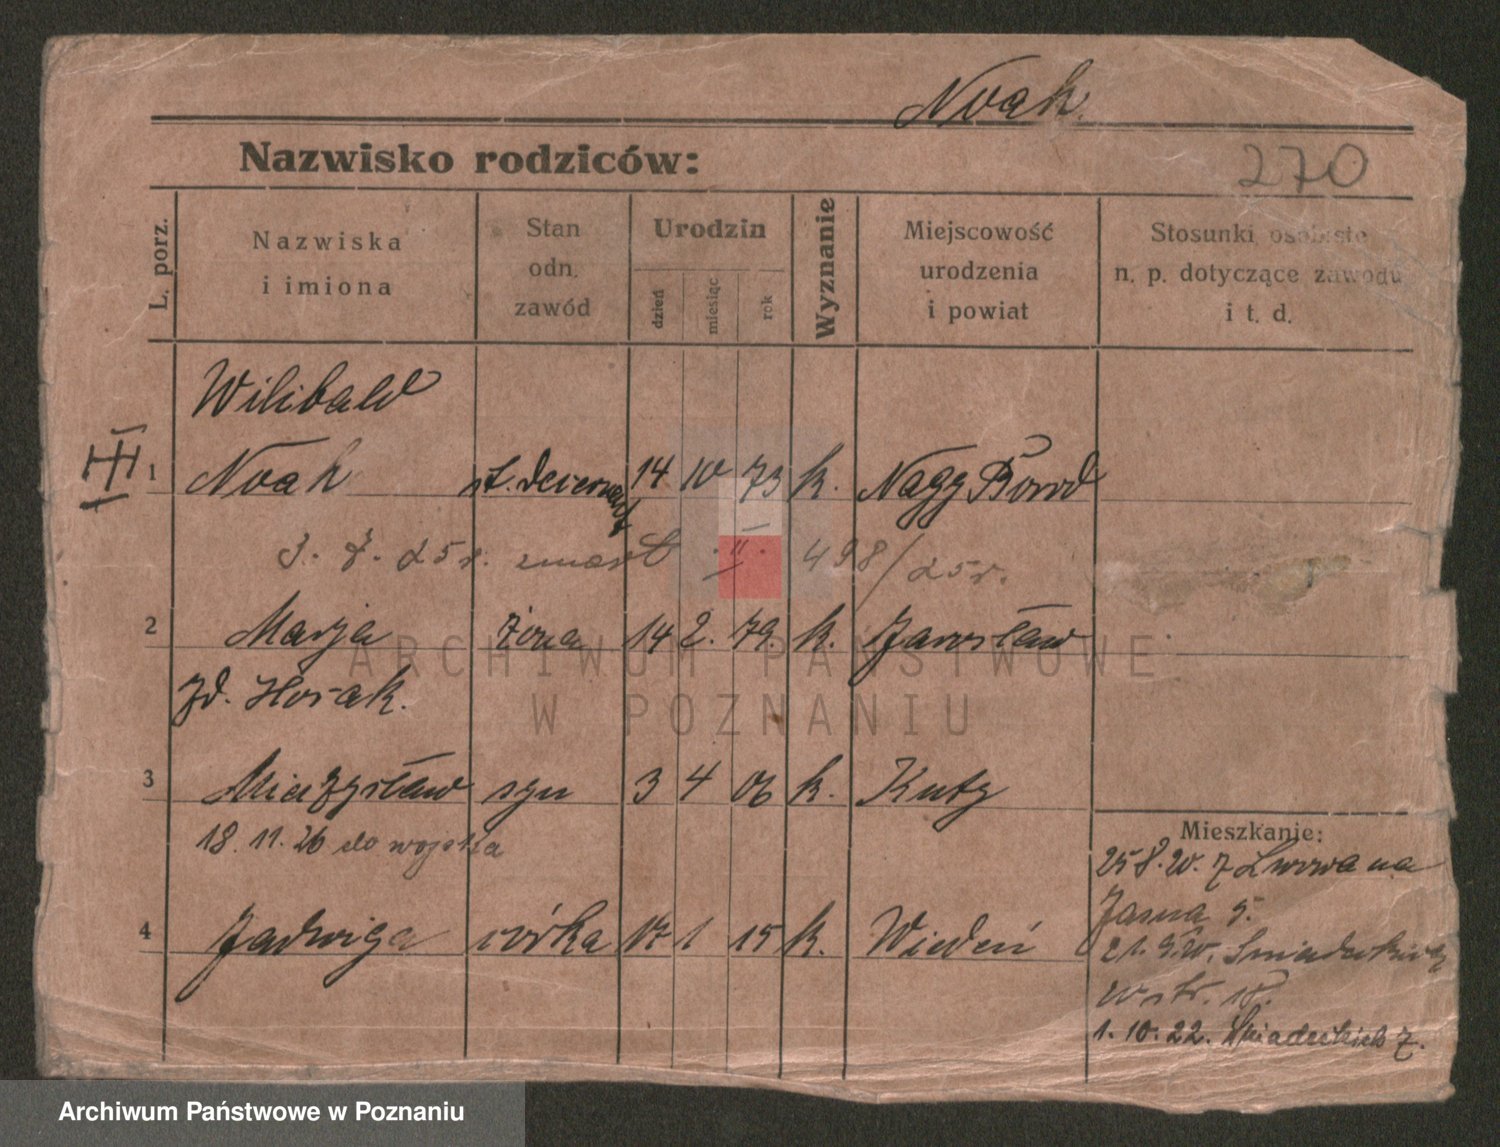 Noak
Nazwisko rodziców:
270
L. porz.
Nazwiska
i imiona
Stan
odn.
zawód
Urodzin
dzień
miesiąc
rok
Wyznanie
Miejscowość
urodzenia
i powiat
Stosunki osobiste
n. p. dotyczące zawodu
i t. d.
Wilibald
III
1 Noak st. 14 10 73 k. Nagy
3. 7. 25 r. zmarł II. 498/25 r.
2 Marja żona 14 2. 79. k. Jarosław
zd. Horak.
3 Mieczysław syn 3 4 06 k. Kuty
18. 11. 26 do wojska
4 Jadwiga córka 17 1 15 k. Wiedeń
Mieszkanie:
25 8. 20. z Lwowa na
Jasna 5.
21. 9. 20.
w str. 18.
1. 10. 22. Śniadeckich 7.
ARCHIWUM PAŃSTWOWE
W POZNANIU
Archiwum Państwowe w Poznaniu